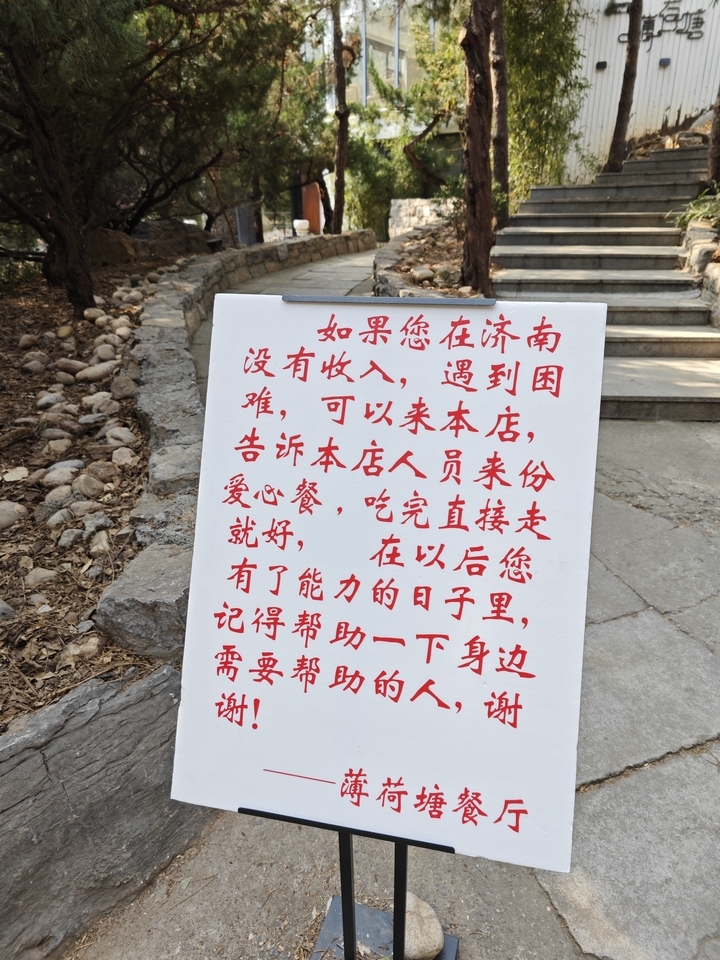 如果您在济南
没有收入，遇到困
难，可以来本店，
告诉本店人员来份
爱心餐，吃完直接走
就好，　在以后您
有了能力的日子里，
记得帮助一下身边
需要帮助的人，谢
谢！
——薄荷塘餐厅